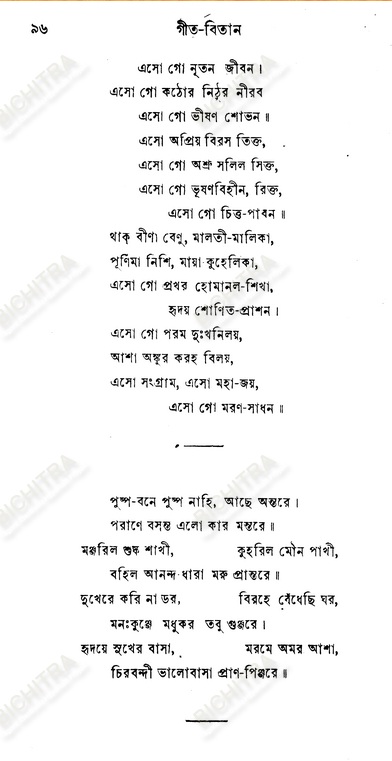 ৯৬ গীত-বিতান
এসো গো নূতন জীবন।
এসো গো কঠোর নিঠুর নীরব
এসো গো ভীষণ শোভন॥
এসো অপ্রিয় বিরস তিক্ত,
এসো গো অশ্রু সলিল সিক্ত,
এসো গো ভূষণবিহীন, রিক্ত,
এসো গো চিত্ত-পাবন॥
থাক্ বীণা বেণু, মালতী-মালিকা,
পূর্ণিমা নিশি, মায়া কুহেলিকা,
এসো গো প্রখর হোমানল-শিখা,
হৃদয় শোণিত-প্রাশন।
এসো গো পরম দুঃখনিলয়,
আশা অঙ্কুর করহ বিলয়,
এসো সংগ্রাম, এসো মহা-জয়,
এসো গো মরণ-সাধন॥
পুষ্প-বনে পুষ্প নাহি, আছে অন্তরে।
পরাণে বসন্ত এলো কার মন্তরে॥
মঞ্জরিল শুষ্ক শাখী, কুহরিল মৌন পাখী,
বহিল আনন্দ ধারা মরু প্রান্তরে॥
দুখেরে করি না ডর, বিরহে বেঁধেছি ঘর,
মনঃকুঞ্জে মধুকর তবু গুঞ্জরে।
হৃদয়ে সুখের বাসা, মরমে অমর আশা,
চিরবন্দী ভালোবাসা প্রাণ-পিঞ্জরে॥
BICHITRA